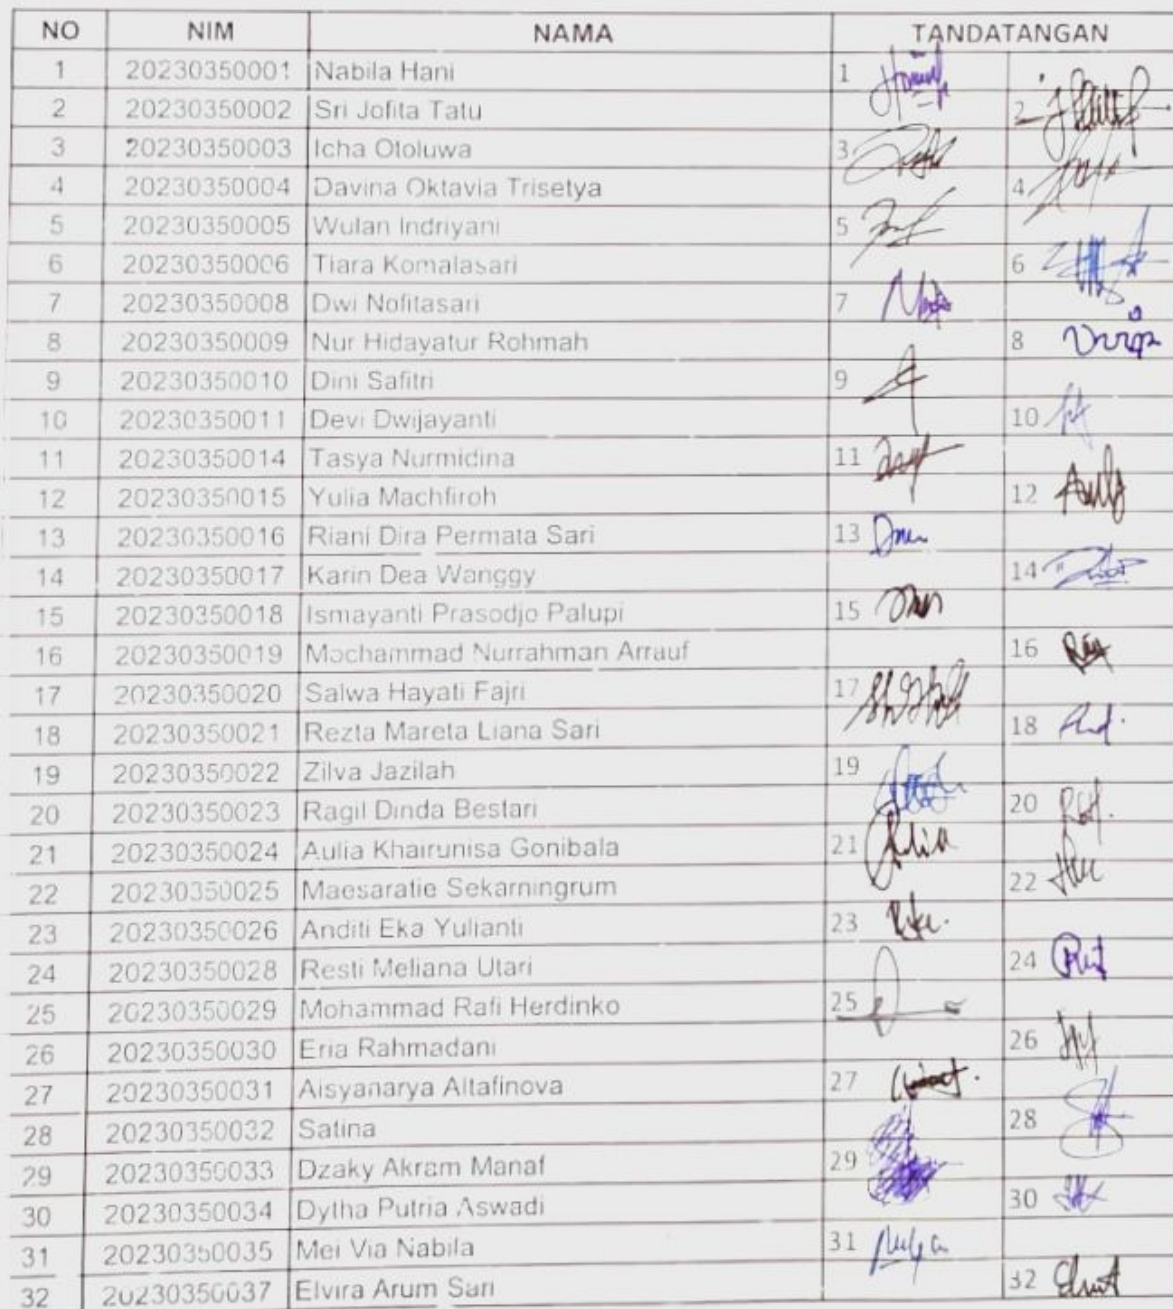 NO NIM NAMA TANDATANGAN
1 20230350001 Nabila Hani 1
2 20230350002 Sri Jofita Tatu 2
3 20230350003 Icha Ololuwa 3
4 20230350004 Davina Oktavia Trisetya 4
5 20230350005 Wulan Indriyani 5
6 20230350006 Tiara Komalasari 6
7 20230350008 Dwi Nofitasari 7
8 20230350009 Nur Hidayatur Rohmah 8
9 20230350010 Dini Safitri 9
10 20230350011 Devi Dwijayanti 10
11 20230350014 Tasya Nurmidina 11
12 20230350015 Yulia Machfiroh 12
13 20230350016 Riani Dira Permata Sari 13
14 20230350017 Karin Dea Wanggy 14
15 20230350018 Ismayanti Prasodjo Palupi 15
16 20230350019 Mochammad Nurrahman Arrauf 16
17 20230350020 Salwa Hayati Fajri 17
18 20230350021 Rezta Mareta Liana Sari 18
19 20230350022 Zilva Jazilah 19
20 20230350023 Ragil Dinda Bestari 20
21 20230350024 Aulia Khairunisa Gonibala 21
22 20230350025 Maesaratie Sekarningrum 22
23 20230350026 Anditi Eka Yulianti 23
24 20230350028 Resti Meliana Utari 24
25 20230350029 Mohammad Rafi Herdinko 25
26 20230350030 Eria Rahmadani 26
27 20230350031 Aisyanarya Altafinova 27
28 20230350032 Satina 28
29 20230350033 Dzaky Akram Manaf 29
30 20230350034 Dytha Putria Aswadi 30
31 20230350035 Mei Via Nabila 31
32 20230350037 Elvira Arum Sari 32